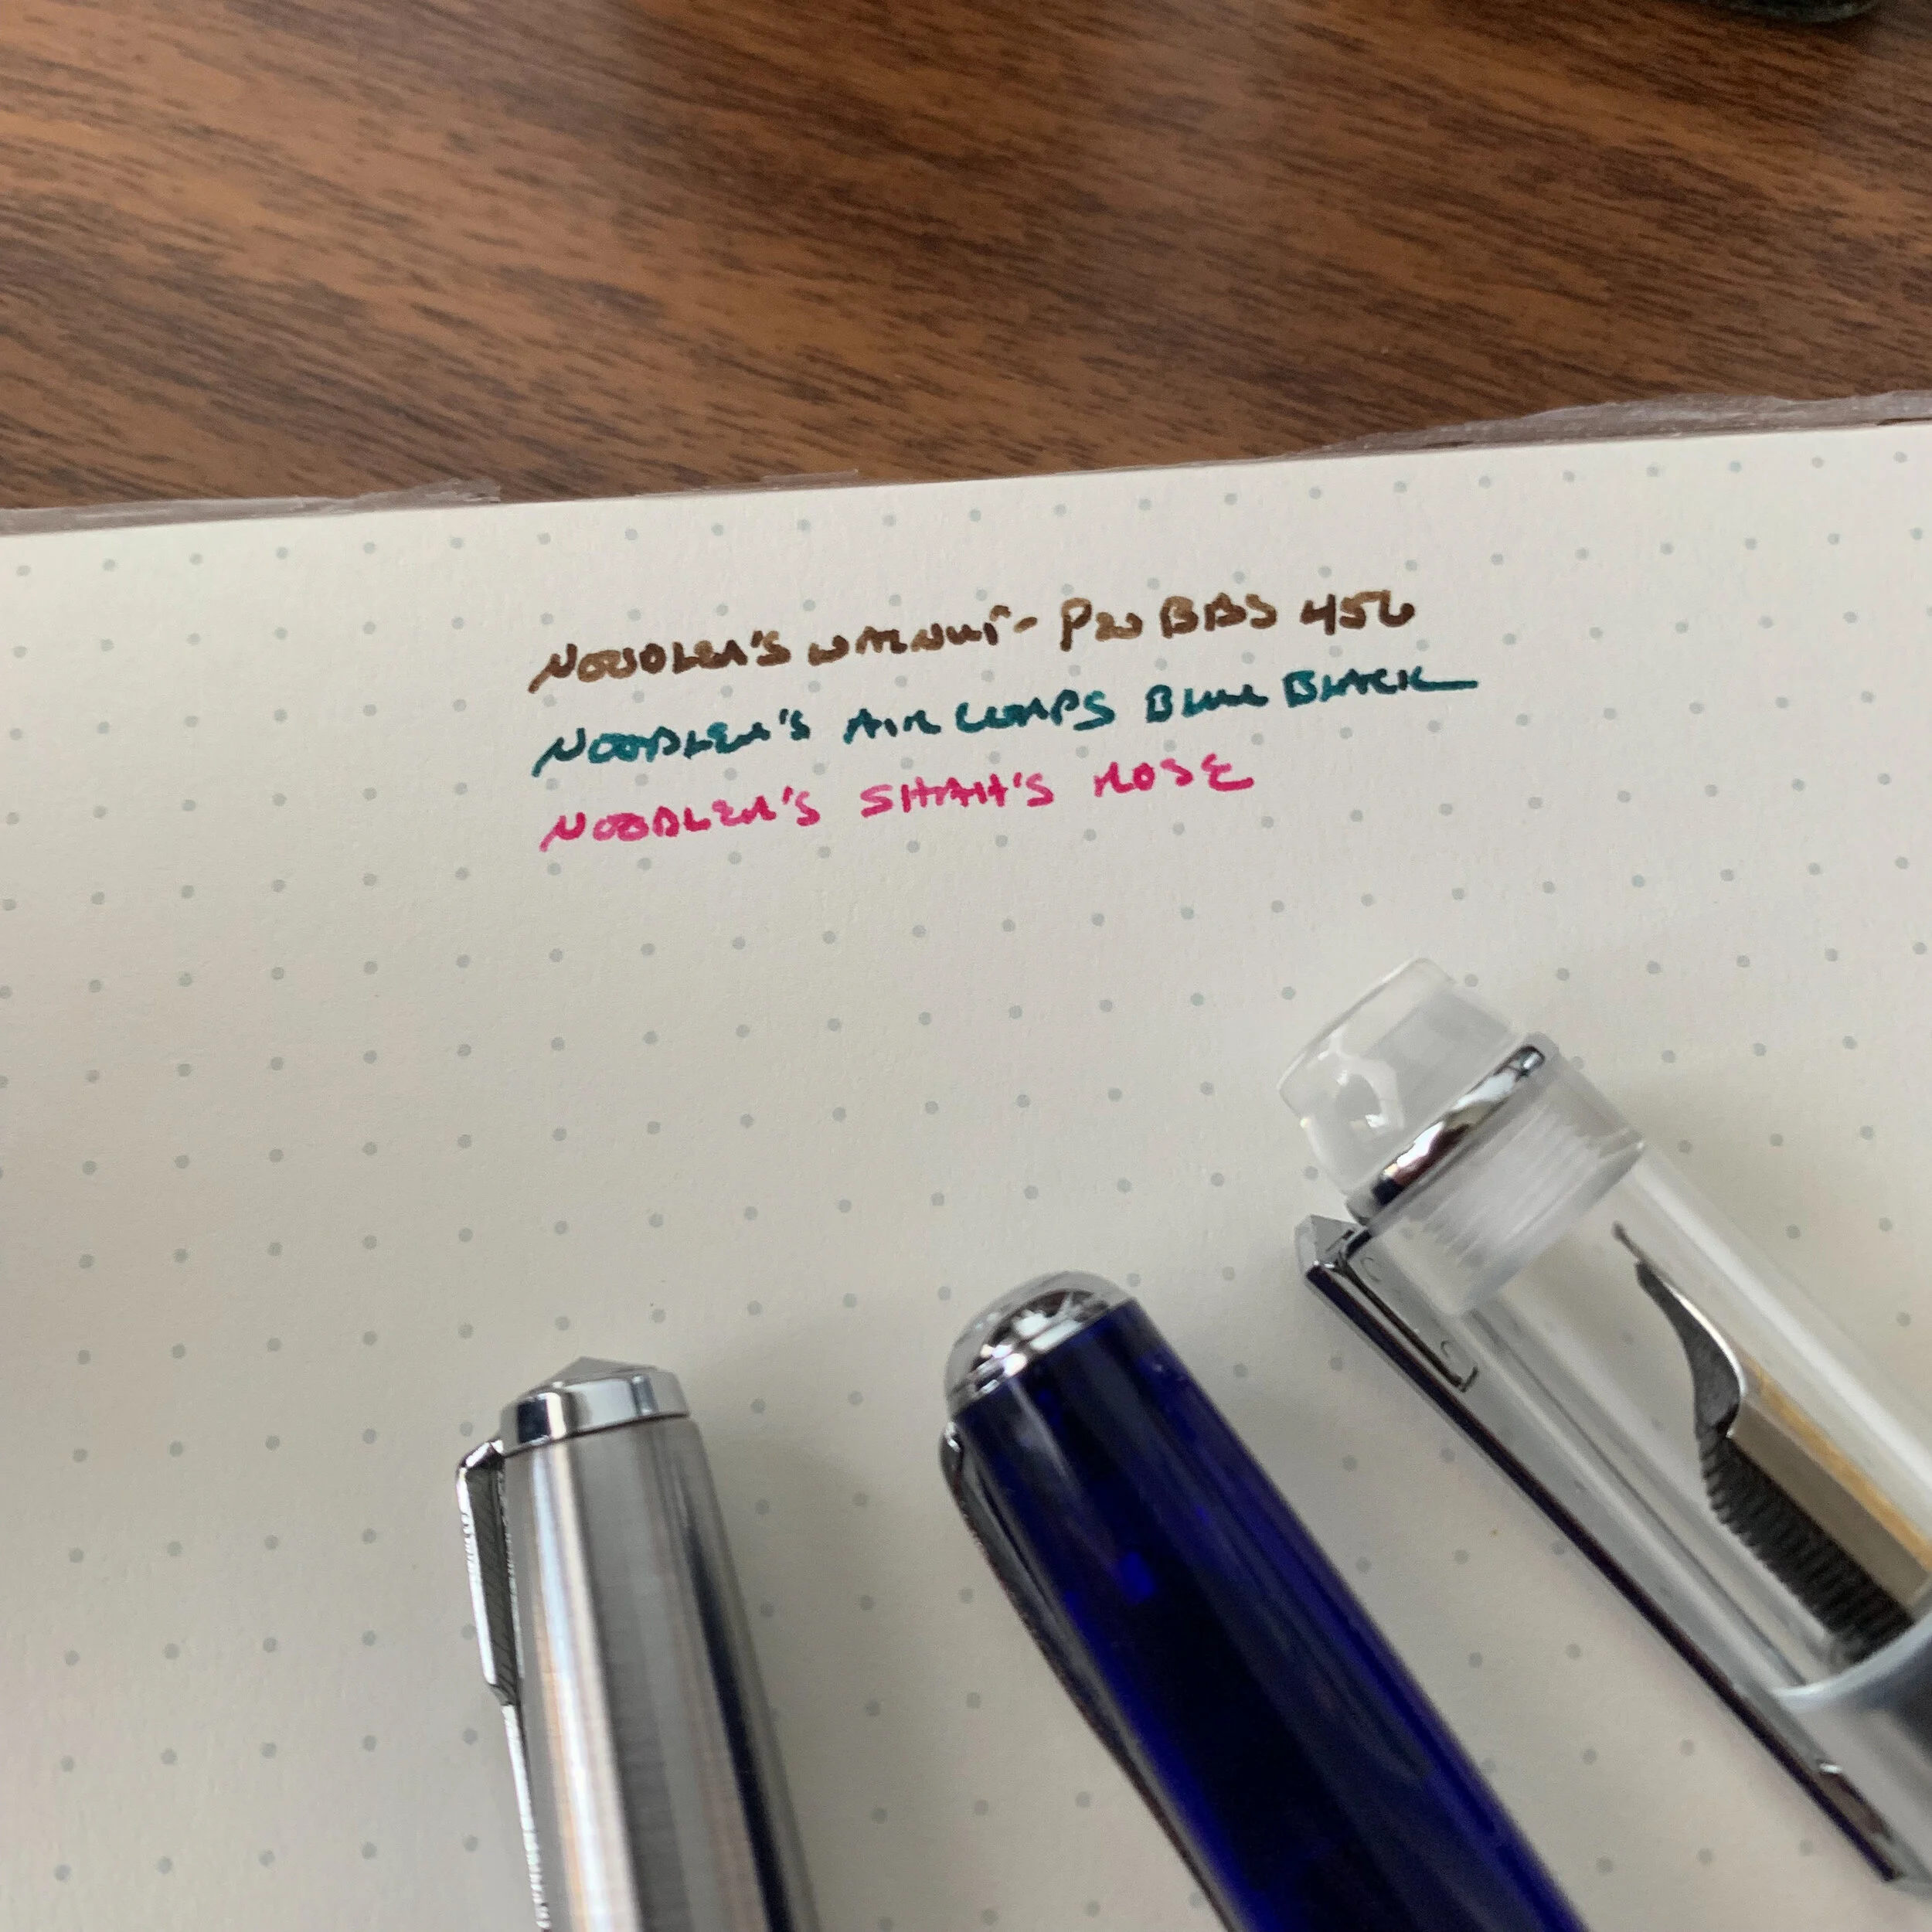 NOODLER'S WALNUT - P20 BBS 456
NOODLER'S AIR CORPS BLUE BLACK
NOODLER'S SHAH'S ROSE